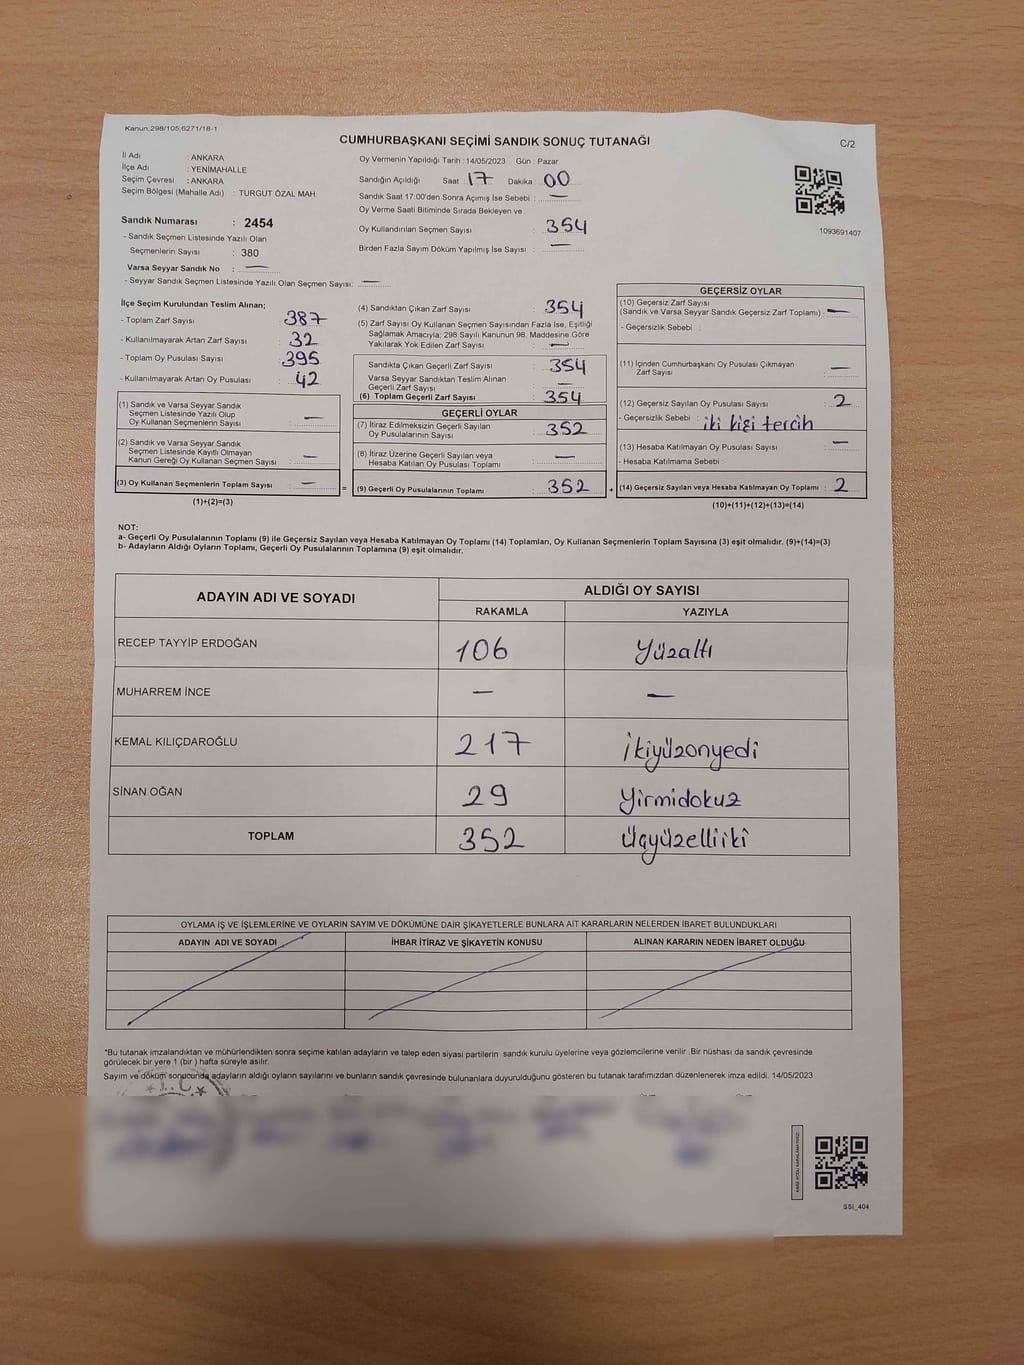 Kanun;298/105;6271/18-1
CUMHURBAŞKANI SEÇİMİ SANDIK SONUÇ TUTANAĞI
C/2
İl Adı : ANKARA
İlçe Adı : YENİMAHALLE
Seçim Çevresi : ANKARA
Seçim Bölgesi (Mahalle Adı) : TURGUT ÖZAL MAH.
Sandık Numarası : 2454
- Sandık Seçmen Listesinde Yazılı Olan
Seçmenlerin Sayısı : 380
Varsa Seyyar Sandık No : —
- Seyyar Sandık Seçmen Listesinde Yazılı Olan Seçmen Sayısı: —
Oy Vermenin Yapıldığı Tarih : 14/05/2023 Gün : Pazar
Sandığın Açıldığı Saat : 17 Dakika : 00
Sandık Saat 17:00'den Sonra Açımış İse Sebebi : —
Oy Verme Saati Bitiminde Sırada Bekleyen ve
Oy Kullandırılan Seçmen Sayısı : 354
Birden Fazla Sayım Döküm Yapılmış İse Sayısı : —
1093691407
İlçe Seçim Kurulundan Teslim Alınan;
- Toplam Zarf Sayısı : 387
- Kullanılmayarak Artan Zarf Sayısı : 32
- Toplam Oy Pusulası Sayısı : 395
- Kullanılmayarak Artan Oy Pusulası : 42
(1) Sandık ve Varsa Seyyar Sandık
Seçmen Listesinde Yazılı Olup
Oy Kullanan Seçmenlerin Sayısı : —
(2) Sandık ve Varsa Seyyar Sandık
Seçmen Listesinde Kayıtlı Olmayan
Kanun Gereği Oy Kullanan Seçmen Sayısı : —
(3) Oy Kullanan Seçmenlerin Toplam Sayısı : —
(1)+(2)=(3)
(4) Sandıktan Çıkan Zarf Sayısı : 354
(5) Zarf Sayısı Oy Kullanan Seçmen Sayısından Fazla İse, Eşitliği
Sağlamak Amacıyla; 298 Sayılı Kanunun 98. Maddesine Göre
Yakılarak Yok Edilen Zarf Sayısı : —
Sandıkta Çıkan Geçerli Zarf Sayısı : 354
Varsa Seyyar Sandıktan Teslim Alınan
Geçerli Zarf Sayısı : —
(6) Toplam Geçerli Zarf Sayısı : 354
GEÇERLİ OYLAR
(7) İtiraz Edilmeksizin Geçerli Sayılan
Oy Pusulalarının Sayısı : 352
(8) İtiraz Üzerine Geçerli Sayılan veya
Hesaba Katılan Oy Pusulası Toplamı : —
= (9) Geçerli Oy Pusulalarının Toplamı : 352 +
GEÇERSİZ OYLAR
(10) Geçersiz Zarf Sayısı
(Sandık ve Varsa Seyyar Sandık Geçersiz Zarf Toplamı) : —
- Geçersizlik Sebebi :
(11) İçinden Cumhurbaşkanı Oy Pusulası Çıkmayan
Zarf Sayısı : —
(12) Geçersiz Sayılan Oy Pusulası Sayısı : 2
- Geçersizlik Sebebi : iki kişi tercih
(13) Hesaba Katılmayan Oy Pusulası Sayısı : —
- Hesaba Katılmama Sebebi :
(14) Geçersiz Sayılan veya Hesaba Katılmayan Oy Toplamı : 2
(10)+(11)+(12)+(13)=(14)
NOT:
a- Geçerli Oy Pusulalarının Toplamı (9) ile Geçersiz Sayılan veya Hesaba Katılmayan Oy Toplamı (14) Toplamları, Oy Kullanan Seçmenlerin Toplam Sayısına (3) eşit olmalıdır. (9)+(14)=(3)
b- Adayların Aldığı Oyların Toplamı, Geçerli Oy Pusulalarının Toplamına (9) eşit olmalıdır.
ADAYIN ADI VE SOYADI ALDIĞI OY SAYISI
RAKAMLA YAZIYLA
RECEP TAYYİP ERDOĞAN 106 Yüzaltı
MUHARREM İNCE — —
KEMAL KILIÇDAROĞLU 217 İkiyüzonyedi
SİNAN OĞAN 29 Yirmidokuz
TOPLAM 352 Üçyüzelliiki
OYLAMA İŞ VE İŞLEMLERİNE VE OYLARIN SAYIM VE DÖKÜMÜNE DAİR ŞİKAYETLERLE BUNLARA AİT KARARLARIN NELERDEN İBARET BULUNDUKLARI
ADAYIN ADI VE SOYADI İHBAR İTİRAZ VE ŞİKAYETİN KONUSU ALINAN KARARIN NEDEN İBARET OLDUĞU
*Bu tutanak imzalandıktan ve mühürlendikten sonra seçime katılan adayların ve talep eden siyasi partilerin sandık kurulu üyelerine veya gözlemcilerine verilir .Bir nüshası da sandık çevresinde
görülecek bir yere 1 (bir ) hafta süreyle asılır.
Sayım ve döküm sonucunda adayların aldığı oyların sayılarını ve bunların sandık çevresinde bulunanlara duyurulduğunu gösteren bu tutanak tarafımızdan düzenlenerek imza edildi. 14/05/2023
T.C.
SSİ_404